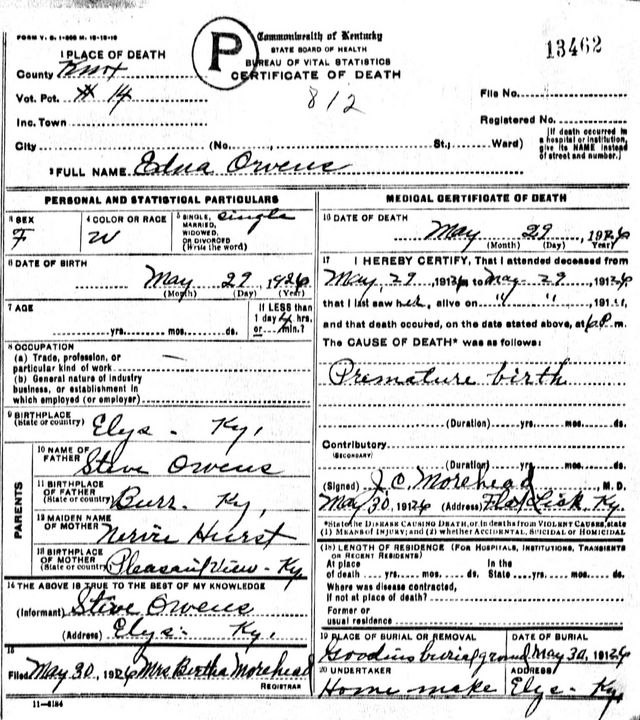 FORM V. S. 1-
P
Commonwealth of Kentucky
STATE BOARD OF HEALTH
BUREAU OF VITAL STATISTICS
CERTIFICATE OF DEATH
13462
812
1 PLACE OF DEATH
County Knox
Vot. Pct. # 14
Inc. Town
City (No., St.; Ward)
File No.
Registered No.
(If death occurred in
a hospital or institution,
give its NAME instead
of street and number.)
2 FULL NAME Edna Owens
PERSONAL AND STATISTICAL PARTICULARS
3 SEX
F
4 COLOR OR RACE
W
5 SINGLE,
MARRIED,
WIDOWED,
OR DIVORCED
(Write the word)
single
6 DATE OF BIRTH
May 29 1926
(Month) (Day) (Year)
7 AGE
yrs. mos. ds.
If LESS than
1 day 4 hrs.
or min.?
8 OCCUPATION
(a) Trade, profession, or
particular kind of work
(b) General nature of industry
business, or establishment in
which employed (or employer)
9 BIRTHPLACE
(State or country) Elys - Ky,
PARENTS
10 NAME OF
FATHER Steve Owens
11 BIRTHPLACE
OF FATHER
(State or country) Burr. Ky,
12 MAIDEN NAME
OF MOTHER Hurst
13 BIRTHPLACE
OF MOTHER
(State or country) Pleasant View - Ky
14 THE ABOVE IS TRUE TO THE BEST OF MY KNOWLEDGE
(Informant) Steve Owens
(Address) Elys - Ky,
15
Filed May 30, 1926 Mrs Bertha Morehead
REGISTRAR
11-6184
MEDICAL CERTIFICATE OF DEATH
16 DATE OF DEATH
May 29, 1926
(Month) (Day) Year
17 I HEREBY CERTIFY, That I attended deceased from
May, 29, 1926 to May - 29, 1926
that I last saw her, alive on " " , 191
and that death occured, on the date stated above, at 6 P. m.
The CAUSE OF DEATH* was as follows:
Premature birth
(Duration) yrs. mos. ds.
Contributory
(SECONDARY)
(Duration) yrs. mos. ds.
(Signed) J. C. Morehead, M. D.
May 30, 1926 (Address) Flat Lick, Ky.
*State the DISEASE CAUSING DEATH, or, in deaths from VIOLENT CAUSES, state
(1) MEANS OF INJURY; and (2) whether ACCIDENTAL, SUICIDAL or HOMICIDAL
(18) LENGTH OF RESIDENCE (FOR HOSPITALS, INSTITUTIONS, TRANSIENTS
OR RECENT RESIDENTS)
At place
of death yrs. mos. ds.
In the
State yrs. mos. ds.
Where was disease contracted,
if not at place of death?
Former or
usual residence
19 PLACE OF BURIAL OR REMOVAL
Goodins burial ground
DATE OF BURIAL
May 30, 1926
20 UNDERTAKER
Home make
ADDRESS
Elys - Ky